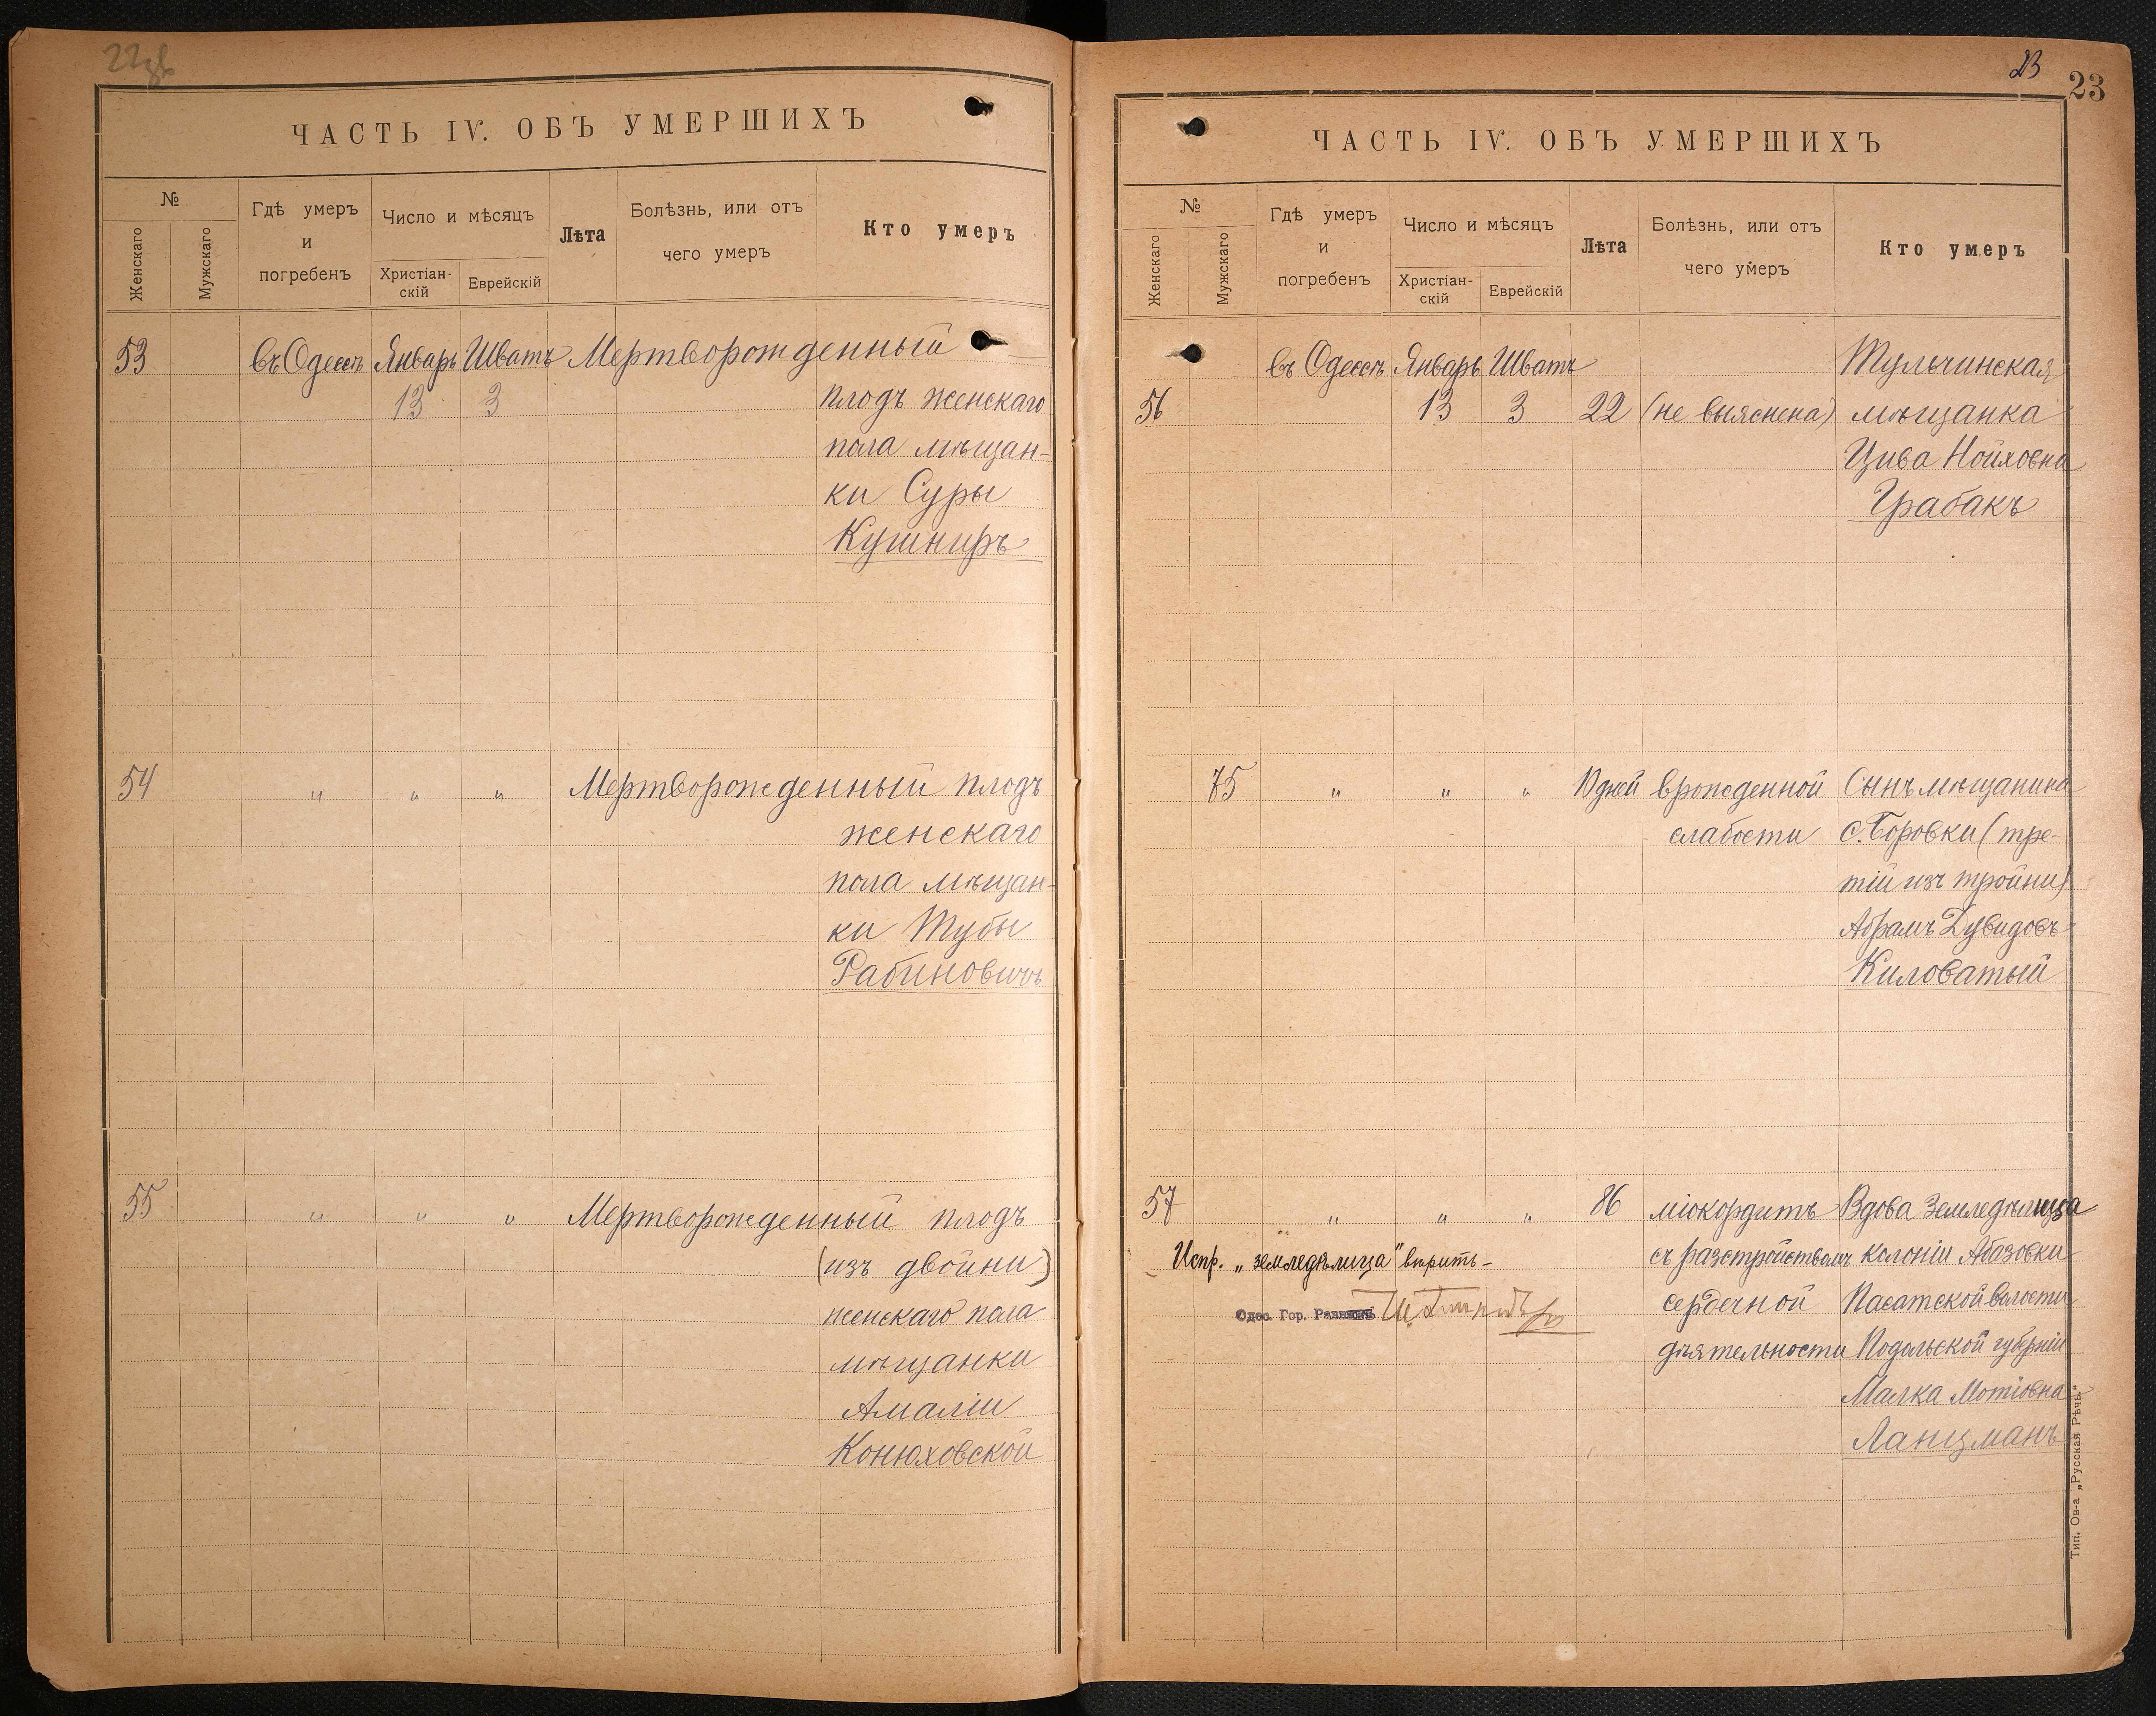 22 об
ЧАСТЬ IV. ОБЪ УМЕРШИХЪ
№
Женскаго
Мужскаго
Гдѣ умеръ
и
погребенъ
Число и мѣсяцъ
Христіан-
скій
Еврейскій
Лѣта
Болѣзнь, или отъ
чего умеръ
Кто умеръ
53 въ Одессѣ Январь Шватъ Мертворожденный
13 3 плодъ женскаго
пола мѣщан-
ки Суры
Кушниръ
54 " " " Мертворожденный плодъ
женскаго
пола мѣщан-
ки Тубы
Рабиновичъ
55 " " " Мертворожденный плодъ
(изъ двойни)
женскаго пола
мѣщанки
Амаліи
Конюховской
23
23
ЧАСТЬ IV. ОБЪ УМЕРШИХЪ
№
Женскаго
Мужскаго
Гдѣ умеръ
и
погребенъ
Число и мѣсяцъ
Христіан-
скій
Еврейскій
Лѣта
Болѣзнь, или отъ
чего умеръ
Кто умеръ
въ Одессѣ Январь Шватъ Тульчинская
56 13 3 22 (не выяснена) мѣщанка
Цива Нойховна
Грабакъ
75 " " " 10 дней врожденной Сынъ мѣщанина
слабости с. Боровки (тре-
тій изъ тройни)
Абрамъ Дувидовъ
Киловатый
57 " " " 86 міокордитъ Вдова Земледѣлица
Испр. „земледѣлица" вѣрить- съ разстройствомъ колоніи Абазовки
Одес. Гор. Раввинъ сердечной Пасатской волости
дѣятельности Подольской губерніи
Малка Мотіовна
Ланцманъ
Тип. Ов-а „Русская Рѣчь"